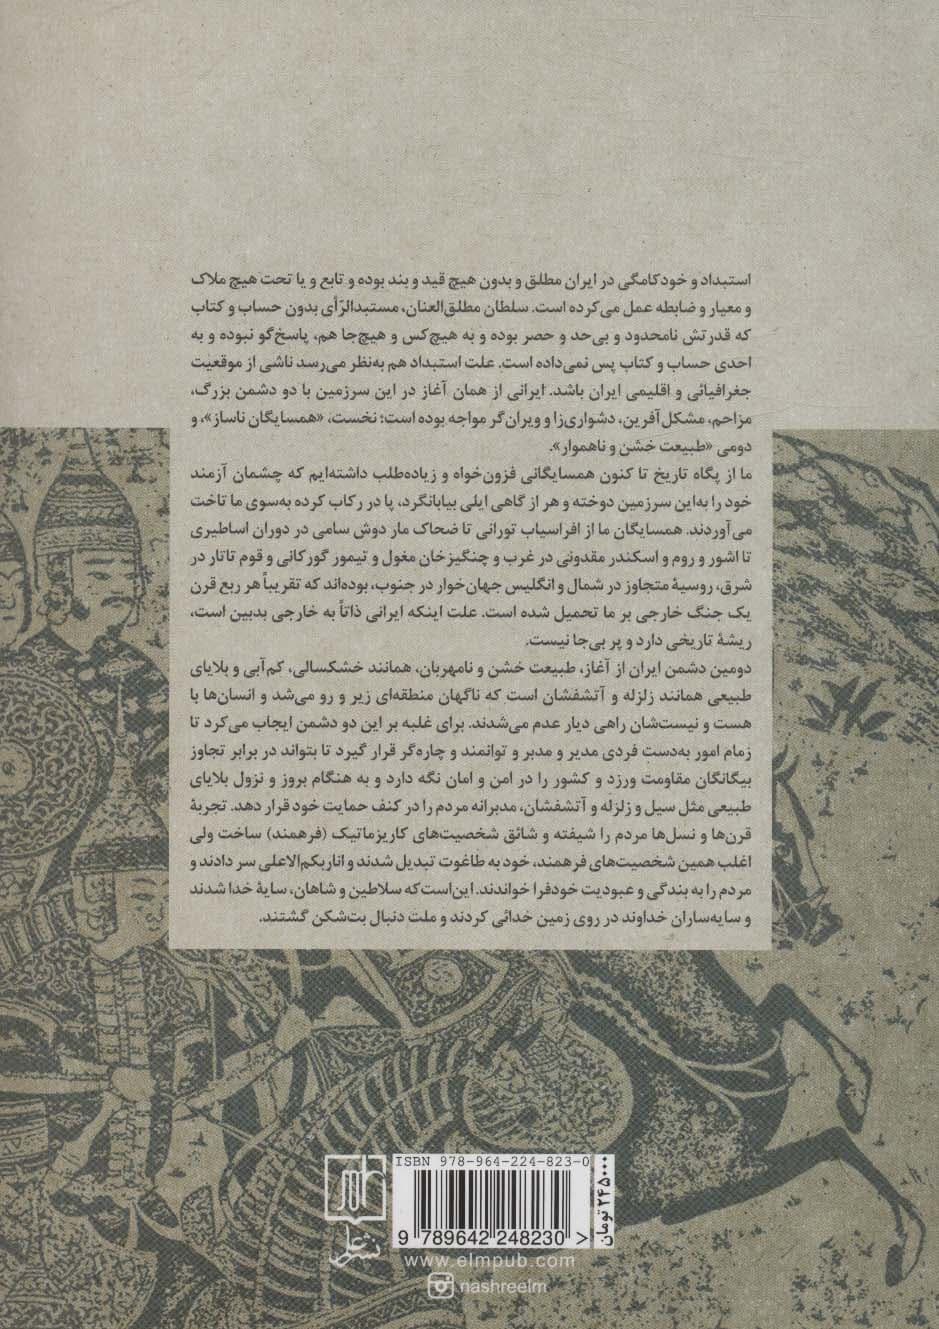 استبداد و خودکامگی در ایران مطلق و بدون هیچ قید و بند بوده و تابع و یا تحت هیچ ملاک
و معیار و ضابطه عمل می‌کرده است. سلطان مطلق‌العنان، مستبدالرّأی بدون حساب و کتاب
که قدرتش نامحدود و بی‌حد و حصر بوده و به هیچ‌کس و هیچ‌جا هم، پاسخ‌گو نبوده و به
احدی حساب و کتاب پس نمی‌داده است. علت استبداد هم به‌نظر می‌رسد ناشی از موقعیت
جغرافیائی و اقلیمی ایران باشد. ایرانی از همان آغاز در این سرزمین با دو دشمن بزرگ،
مزاحم، مشکل‌آفرین، دشواری‌زا و ویران‌گر مواجه بوده است؛ نخست، «همسایگان ناساز»، و
دومی «طبیعت خشن و ناهموار».
ما از پگاه تاریخ تا کنون همسایگانی فزون‌خواه و زیاده‌طلب داشته‌ایم که چشمان آزمند
خود را به‌این سرزمین دوخته و هر از گاهی ایلی بیابانگرد، پا در رکاب کرده به‌سوی ما تاخت
می‌آوردند. همسایگان ما از افراسیاب تورانی تا ضحاک مار دوش سامی در دوران اساطیری
تا اشور و روم و اسکندر مقدونی در غرب و چنگیزخان مغول و تیمور گورکانی و قوم تاتار در
شرق، روسیهٔ متجاوز در شمال و انگلیس جهان‌خوار در جنوب، بوده‌اند که تقریباً هر ربع قرن
یک جنگ خارجی بر ما تحمیل شده است. علت اینکه ایرانی ذاتاً به خارجی بدبین است،
ریشهٔ تاریخی دارد و پر بی‌جا نیست.
دومین دشمن ایران از آغاز، طبیعت خشن و نامهربان، همانند خشکسالی، کم‌آبی و بلایای
طبیعی همانند زلزله و آتشفشان است که ناگهان منطقه‌ای زیر و رو می‌شد و انسان‌ها با
هست و نیست‌شان راهی دیار عدم می‌شدند. برای غلبه بر این دو دشمن ایجاب می‌کرد تا
زمام امور به‌دست فردی مدیر و مدبر و توانمند و چاره‌گر قرار گیرد تا بتواند در برابر تجاوز
بیگانگان مقاومت ورزد و کشور را در امن و امان نگه دارد و به هنگام بروز و نزول بلایای
طبیعی مثل سیل و زلزله و آتشفشان، مدبرانه مردم را در کنف حمایت خود قرار دهد. تجربهٔ
قرن‌ها و نسل‌ها مردم را شیفته و شائق شخصیت‌های کاریزماتیک (فرهمند) ساخت ولی
اغلب همین شخصیت‌های فرهمند، خود به طاغوت تبدیل شدند و اناربکم‌الاعلی سر دادند و
مردم را به بندگی و عبودیت خودفرا خواندند. این‌است که سلاطین و شاهان، سایهٔ خدا شدند
و سایه‌ساران خداوند در روی زمین خدائی کردند و ملت دنبال بت‌شکن گشتند.
ISBN 978-964-224-823-0
9 789642 248230 >
۲۴۵۰۰۰ تومان
علم
نشر علم
www.elmpub.com
nashreelm